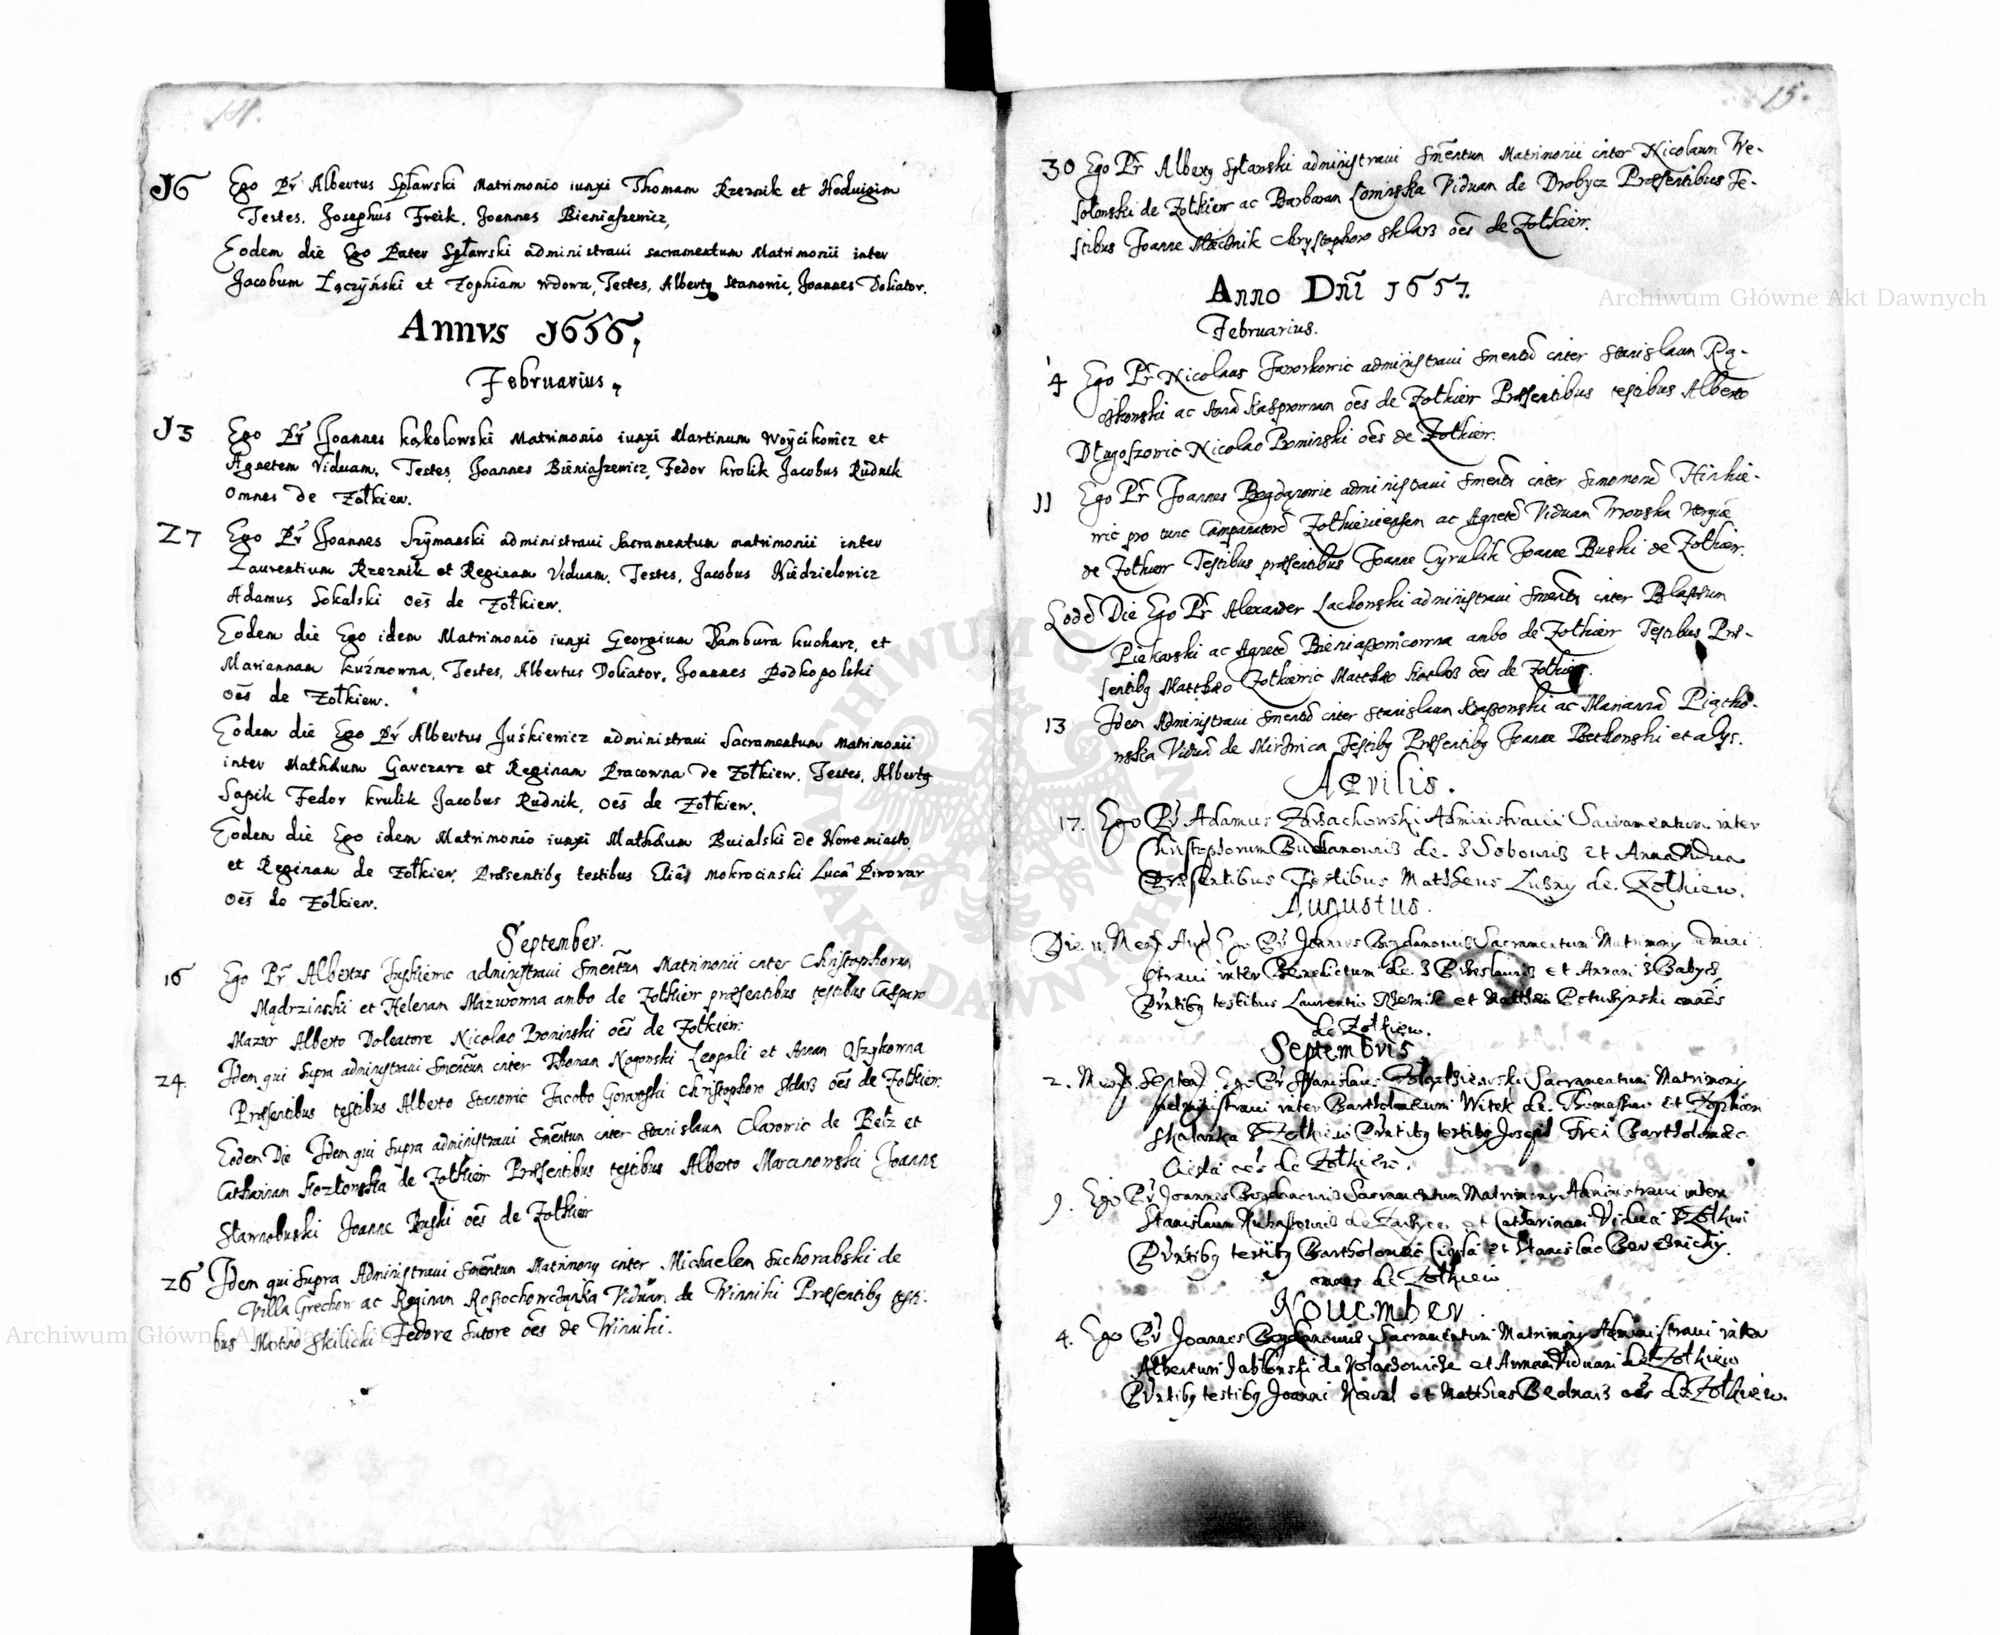 14.
16 Ego Pr Albertus Spławski Matrimonio iunxi Thomam Rzeznik et Hedvigim
Testes. Josephus Freik. Joannes Bieniaszewicz,
Eodem die Ego Pater Spławski administravi sacramentum Matrimonii inter
Jacobum Łączyński et Zophiam wdowa, Testes, Albertq Stanowic, Joannes Doliator.
Annvs 1656,
Februarius,
13 Ego Pr Joannes kąkolowski Matrimonio iunxi Martinum Woycikowicz et
Agnetem Viduam, Testes, Joannes Bieniaszewicz, Fedor krolik Jacobus Rudnik
Omnes de Zołkiew.
27 Ego Pr Joannes Szymanski administravi Sacramentum matrimonii inter
Laurentium Rzeznik et Reginam Viduam. Testes, Jacobus Niedzielowicz
Adamus Sokalski oes de Zołkiew.
Eodem die Ego idem Matrimonio iunxi Georgium Bambura kucharz, et
Mariannam kuźnowna, Testes, Albertus Doliator, Joannes Podkopolski
oes de Zołkiew.
Eodem die Ego Pr Albertus Juśkiewicz administravi Sacramentum Matrimonii
inter Mathæum Garczarz et Reginam Pracowna de Zołkiew. Testes, Albertq
Sapik Fedor krulik Jacobus Rudnik, oes de Zołkiew.
Eodem die Ego idem Matrimonio iunxi Mathæum Buialski de Nowemiasto,
et Reginam de Zołkiew. Præsentibq testibus Eliâ Mokrocinski Lucâ Pirowar
oes de Zołkiew.
September.
16 Ego Pr Albertus Juskiewic administravi Smentum Matrimonii inter Christophorum
Mądrzinski et Helenam Mazurowna ambo de Zołkiew præsentibus testibus Casparo
Mazur Alberto Doleatore Nicolao Prominski oes de Zołkiew.
24. Idem qui supra administravi Smentum inter Thomam Nogowski Leopoli et Annam
Præsentibus testibus Alberto Stanowic Jacobo Christophoro Sklarz oes de Zołkiew.
Eodem Die Idem qui supra administravi Smentum inter Stanislaum Clarowic de Bełz et
Catharinam Kozłowska de Zołkiew Præsentibus testibus Alberto Marcinowski Joanne
Starnobuski Joanne Buski oes de Zołkiew
26 Idem qui supra Administravi Smentum Matrimony inter Michaelem Suchorabski de
Villa Grechow ac Reginam Viduam de Winniki Præsentibq testi-
bus Martino Skilicki Fedore Sutore oes de Winniki.
15.
30 Ego Pr Albertq Spławski administravi Smentum Matrimonii inter Nicolaum We-
solowski de Zołkiew ac Barbaram Lominska Viduam de Drobycz Præsentibus Te-
stibus Joanne Miecznik Chrystophoro Sklarz oes de Zołkiew.
Anno Dni 1657.
Februarius.
4 Ego Pr Nicolaus Jaworkowic administravi Smentu inter Stanislaum Rą-
ac Kasprownam oes de Zołkiew Præsentibus testibus Alberto
Długoszowic Nicolao Prominski oes de Zołkiew.
11 Ego Pr Joannes Bogdanowic administravi Smentu inter Simonem Hinkie-
wic pro tunc Campanatore Zołkieviensem ac Agnete Viduam
de Zołkiew Testibus præsentibus Joanne Cyrulik Joanne Buski de Zołkiew.
Eode Die Ego Pr Alexander Lachowski administravi Smentu inter Blasium
Piekarski ac Agnete Bieniaszowicowna ambo de Zołkiew Testibus Præ-
sentibq Matthæo Zołkiewic Matthæo oes de Zołkiew.
13 Idem Administravi Smentu inter Stanislaum ac Marianna Piątko-
wska Vidua de Testibq Præsentibq Joanne et alys.
Aprilis.
17. Ego Pr Adamus Administravi Sacramentum inter
Christophorum de et Anna Vidua
Præsentibus Testibus Mattheus Luzny de Zołkiew.
Augustus.
Die 11 Ego Pr Joannes Bogdanowic Sacramentum Matrimony admini
stravi inter Benedictum de et Annam
Prntibq testibus Laurentio Rzeznik et omes
de Zołkiew.
Septembris
2. Ego Pr Stanislaus Sacramentum Matrimony
Administravi inter Bartholomæum Witek de et Zophiam
Zołkiew Pruntibq testibq Joseph Frei Bartholomæo
oes de Zołkiew.
9. Ego Pr Joannes Bogdanowic Sacramentum Matrimony Administravi inter
Stanislaum de et Catharinam Vidua
Pruntibq testibq Bartholomæo et Stanislao
omnes de Zołkiew
November.
4. Ego Pr Joannes Bogdanowic Sacramentum Matrimony Administravi inter
Albertum Jabłonski de et Annam Viduam de Zołkiew
Pruntibq testibq Joanni Kowal et Matthias Bednarz oes de Zołkiew.
Archiwum Główne Akt Dawnych